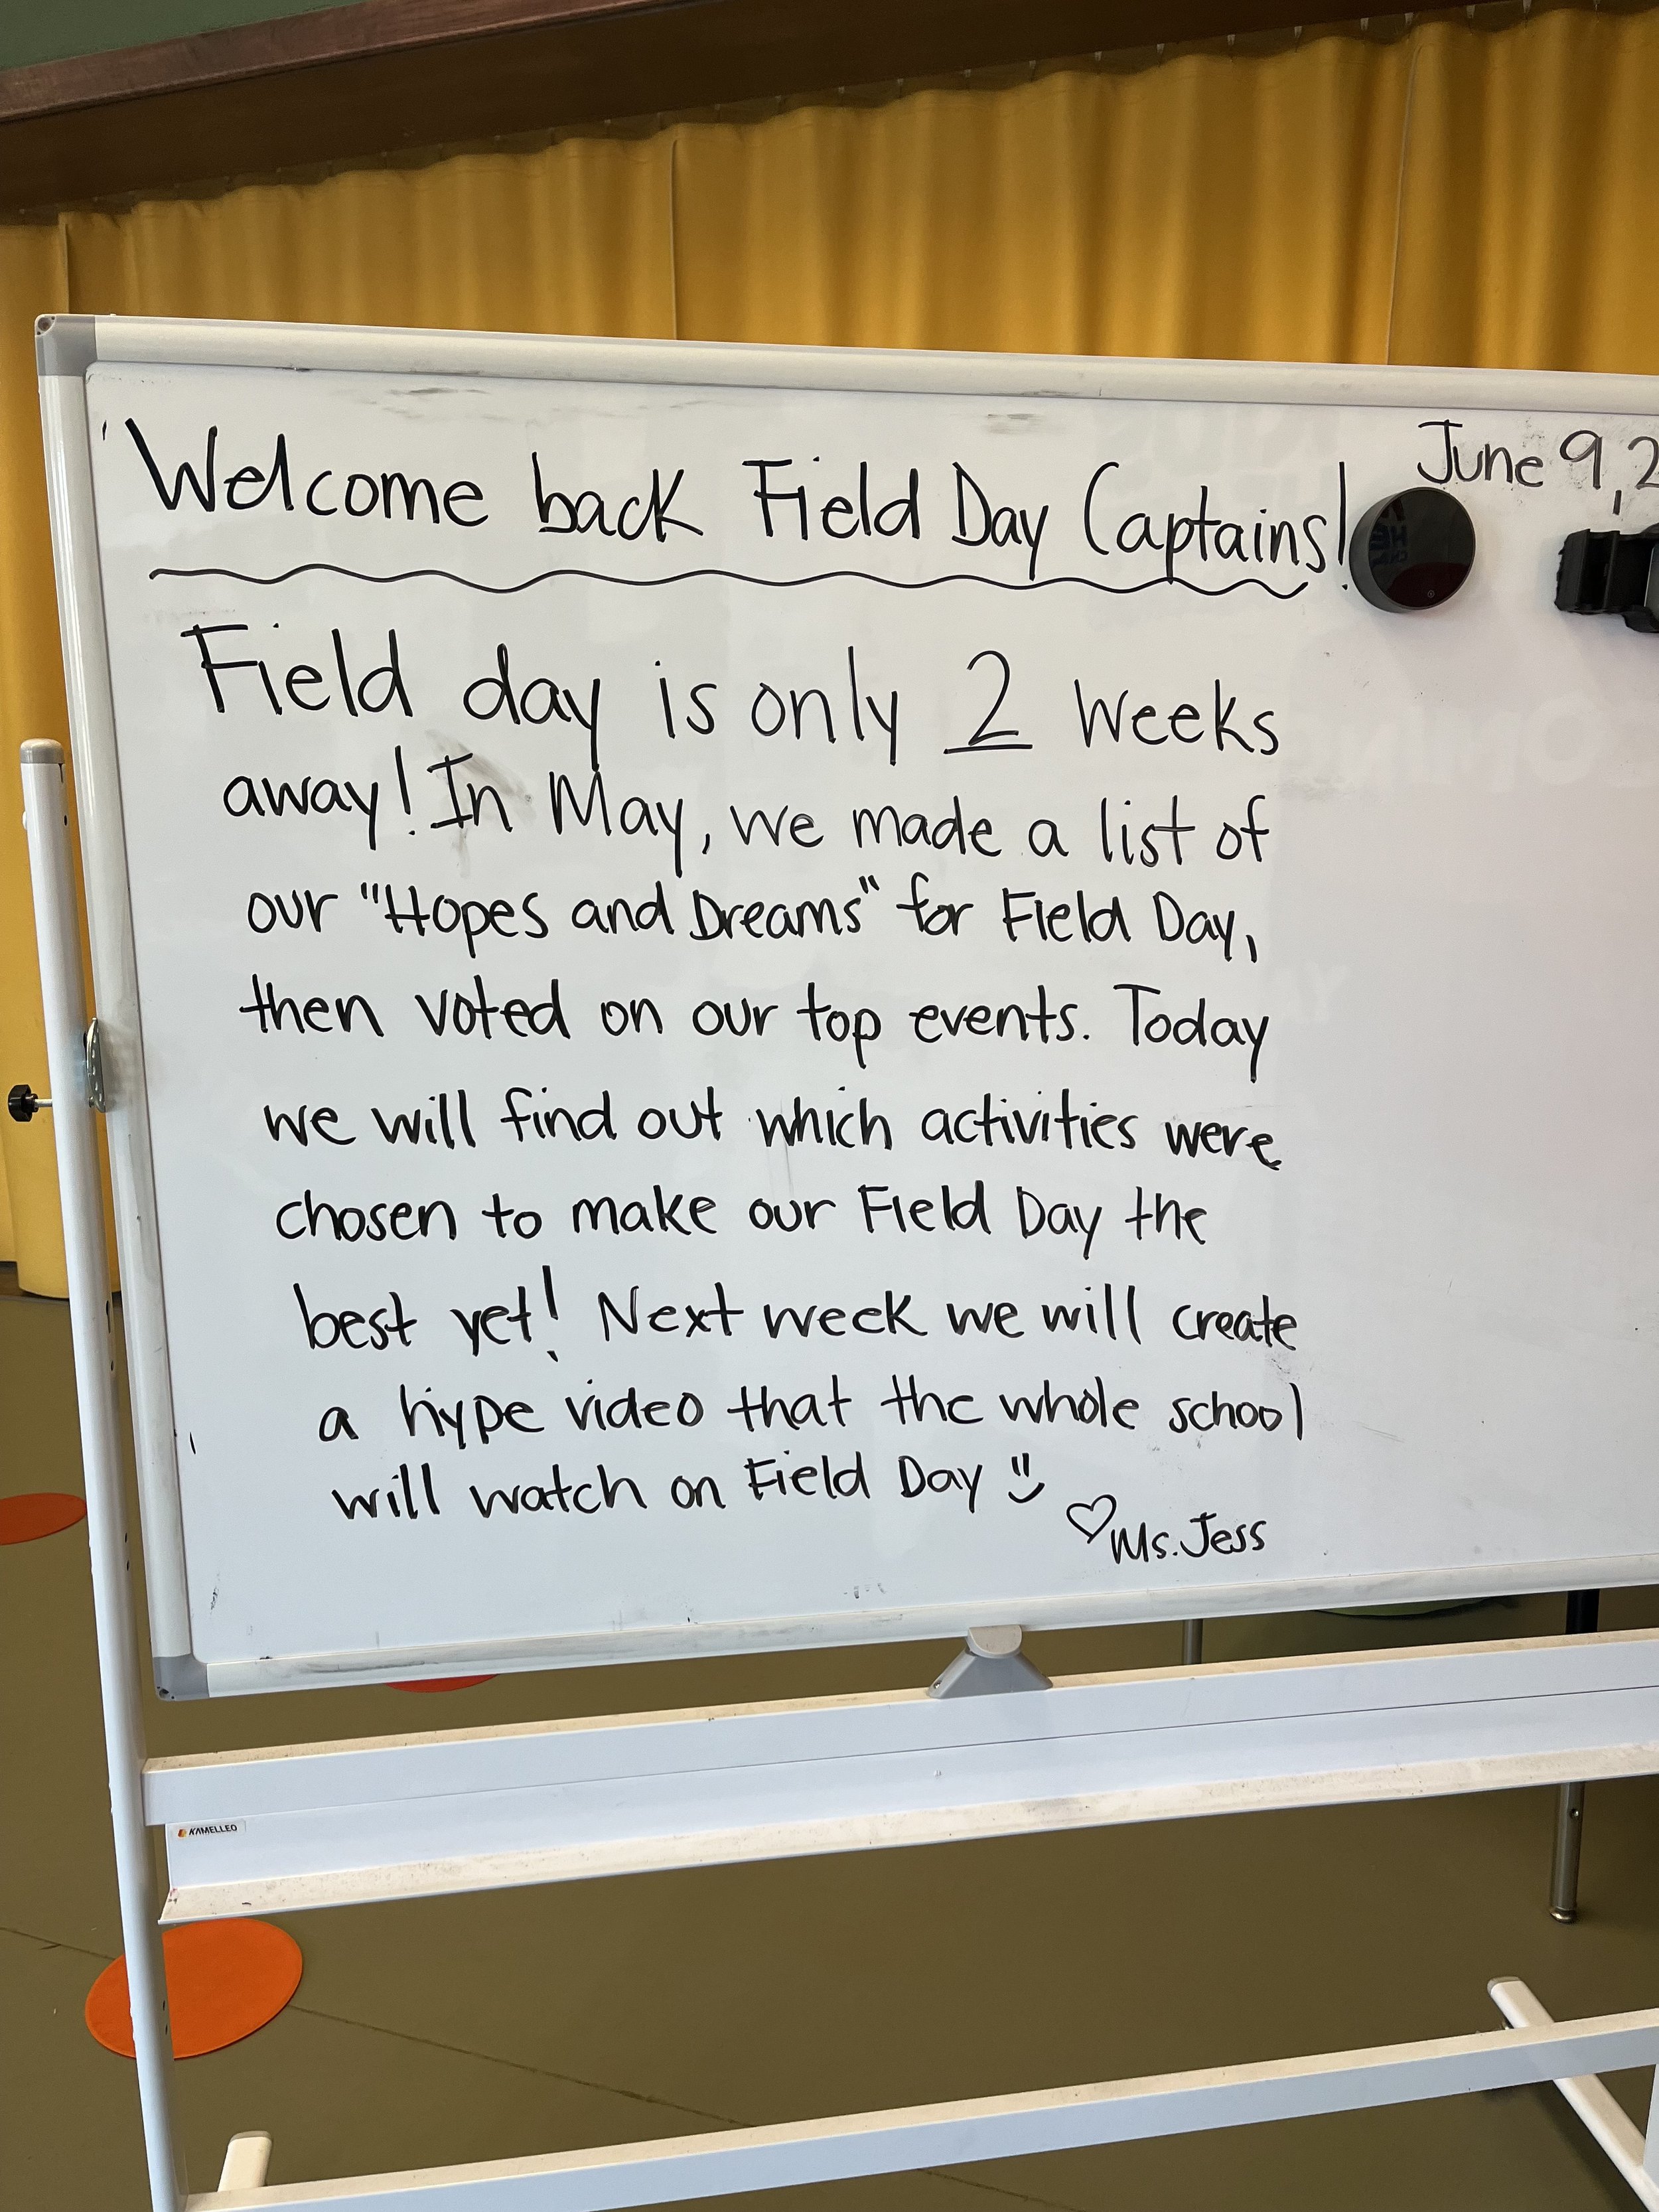 Welcome back Field Day Captains!
June 9, 2
Field day is only 2 weeks
away! In May, we made a list of
our "Hopes and Dreams" for Field Day,
then voted on our top events. Today
we will find out which activities were
chosen to make our Field Day the
best yet! Next week we will create
a hype video that the whole school
will watch on Field Day
Ms. Jess
KAMELLEO